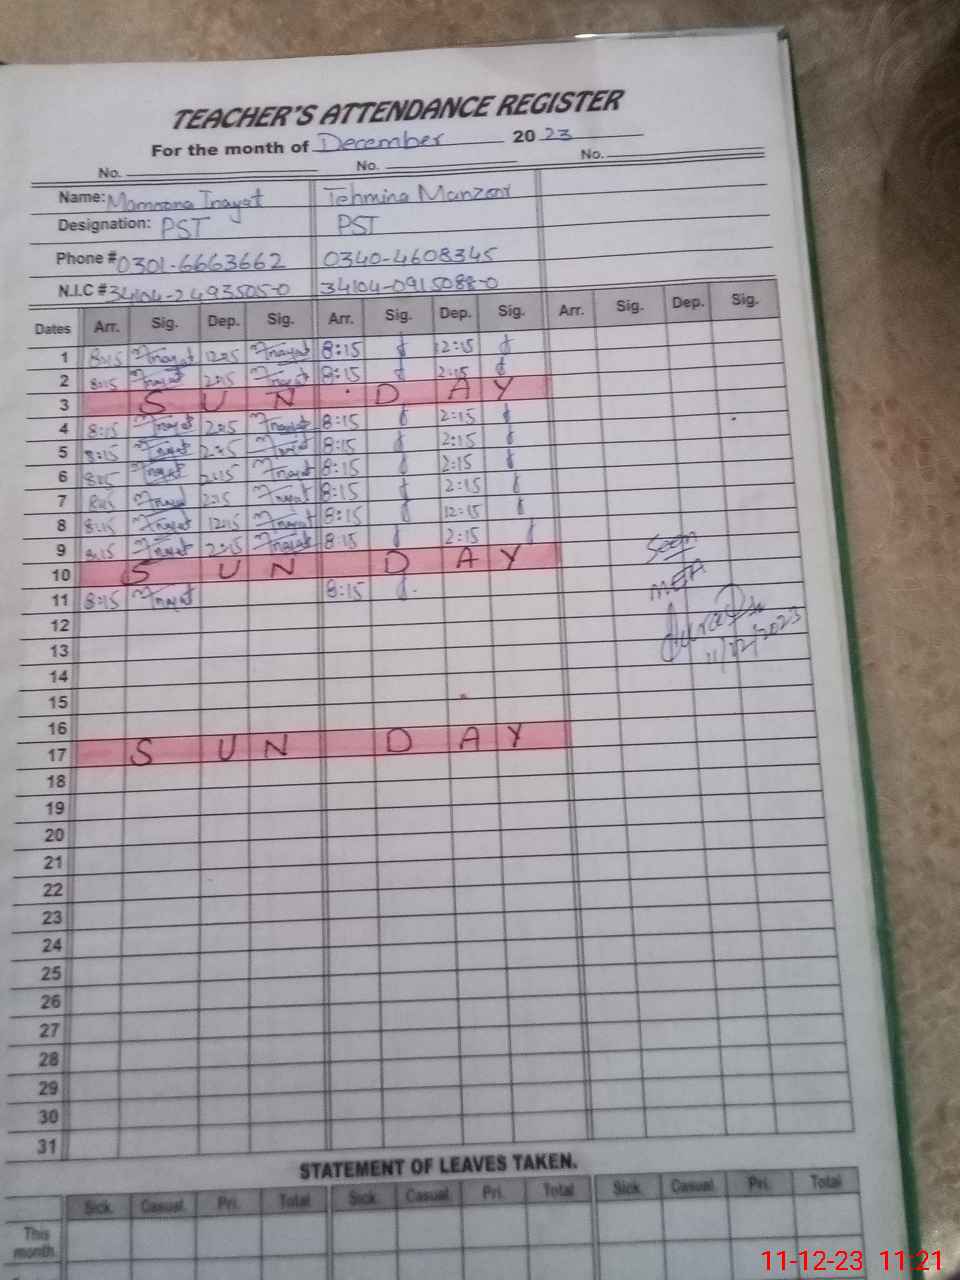 TEACHER'S ATTENDANCE REGISTER
For the month of December 2023
No. No. No.
Name: Mamoona Inayat Tehmina Manzoor
Designation: PST PST
Phone # 0301-6663662 0340-4608345
N.I.C # 34104-2493505-0 34104-0915088-0
Dates Arr. Sig. Dep. Sig. Arr. Sig. Dep. Sig. Arr. Sig. Dep. Sig.
1 8:15 Inayat 12:15 Inayat 8:15 12:15
2 8:15 Inayat 2:15 Inayat 8:15 2:15
3 S U N D A Y
4 8:15 Inayat 2:15 Inayat 8:15 2:15
5 8:15 Inayat 2:15 Inayat 8:15 2:15
6 8:15 Inayat 2:15 Inayat 8:15 2:15
7 8:15 Inayat 2:15 Inayat 8:15 2:15
8 8:15 Inayat 12:15 Inayat 8:15 12:15
9 8:15 Inayat 2:15 Inayat 8:15 2:15
Seen
10 S U N D A Y
MEA
11 8:15 Inayat 8:15
11/12/2023
12
13
14
15
16
17 S U N D A Y
18
19
20
21
22
23
24
25
26
27
28
29
30
31
STATEMENT OF LEAVES TAKEN.
Sick. Casual. Pri. Total Sick. Casual. Pri. Total Sick. Casual. Pri. Total
This
month.
11-12-23 11:21